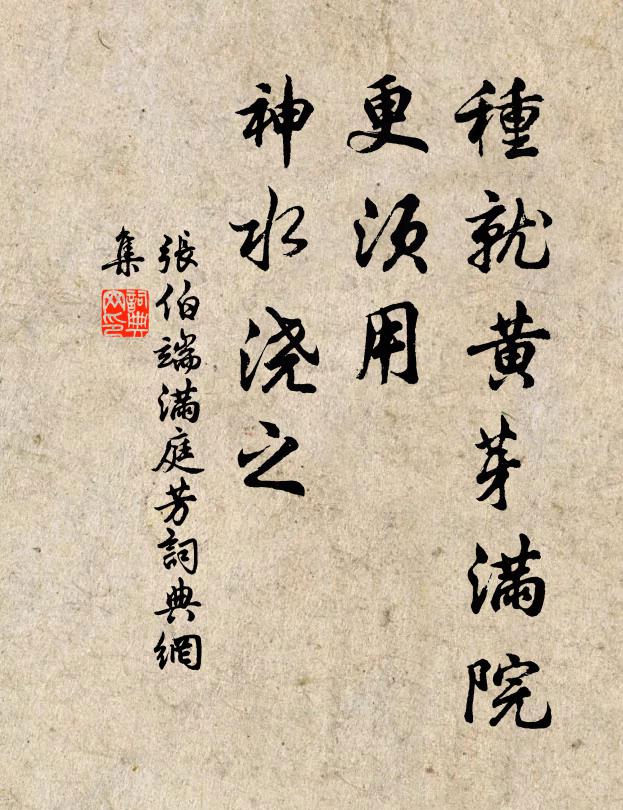 種就黄芽滿院
更須用
神水浇之
張伯端滿庭芳詞典網
集
詞典網印